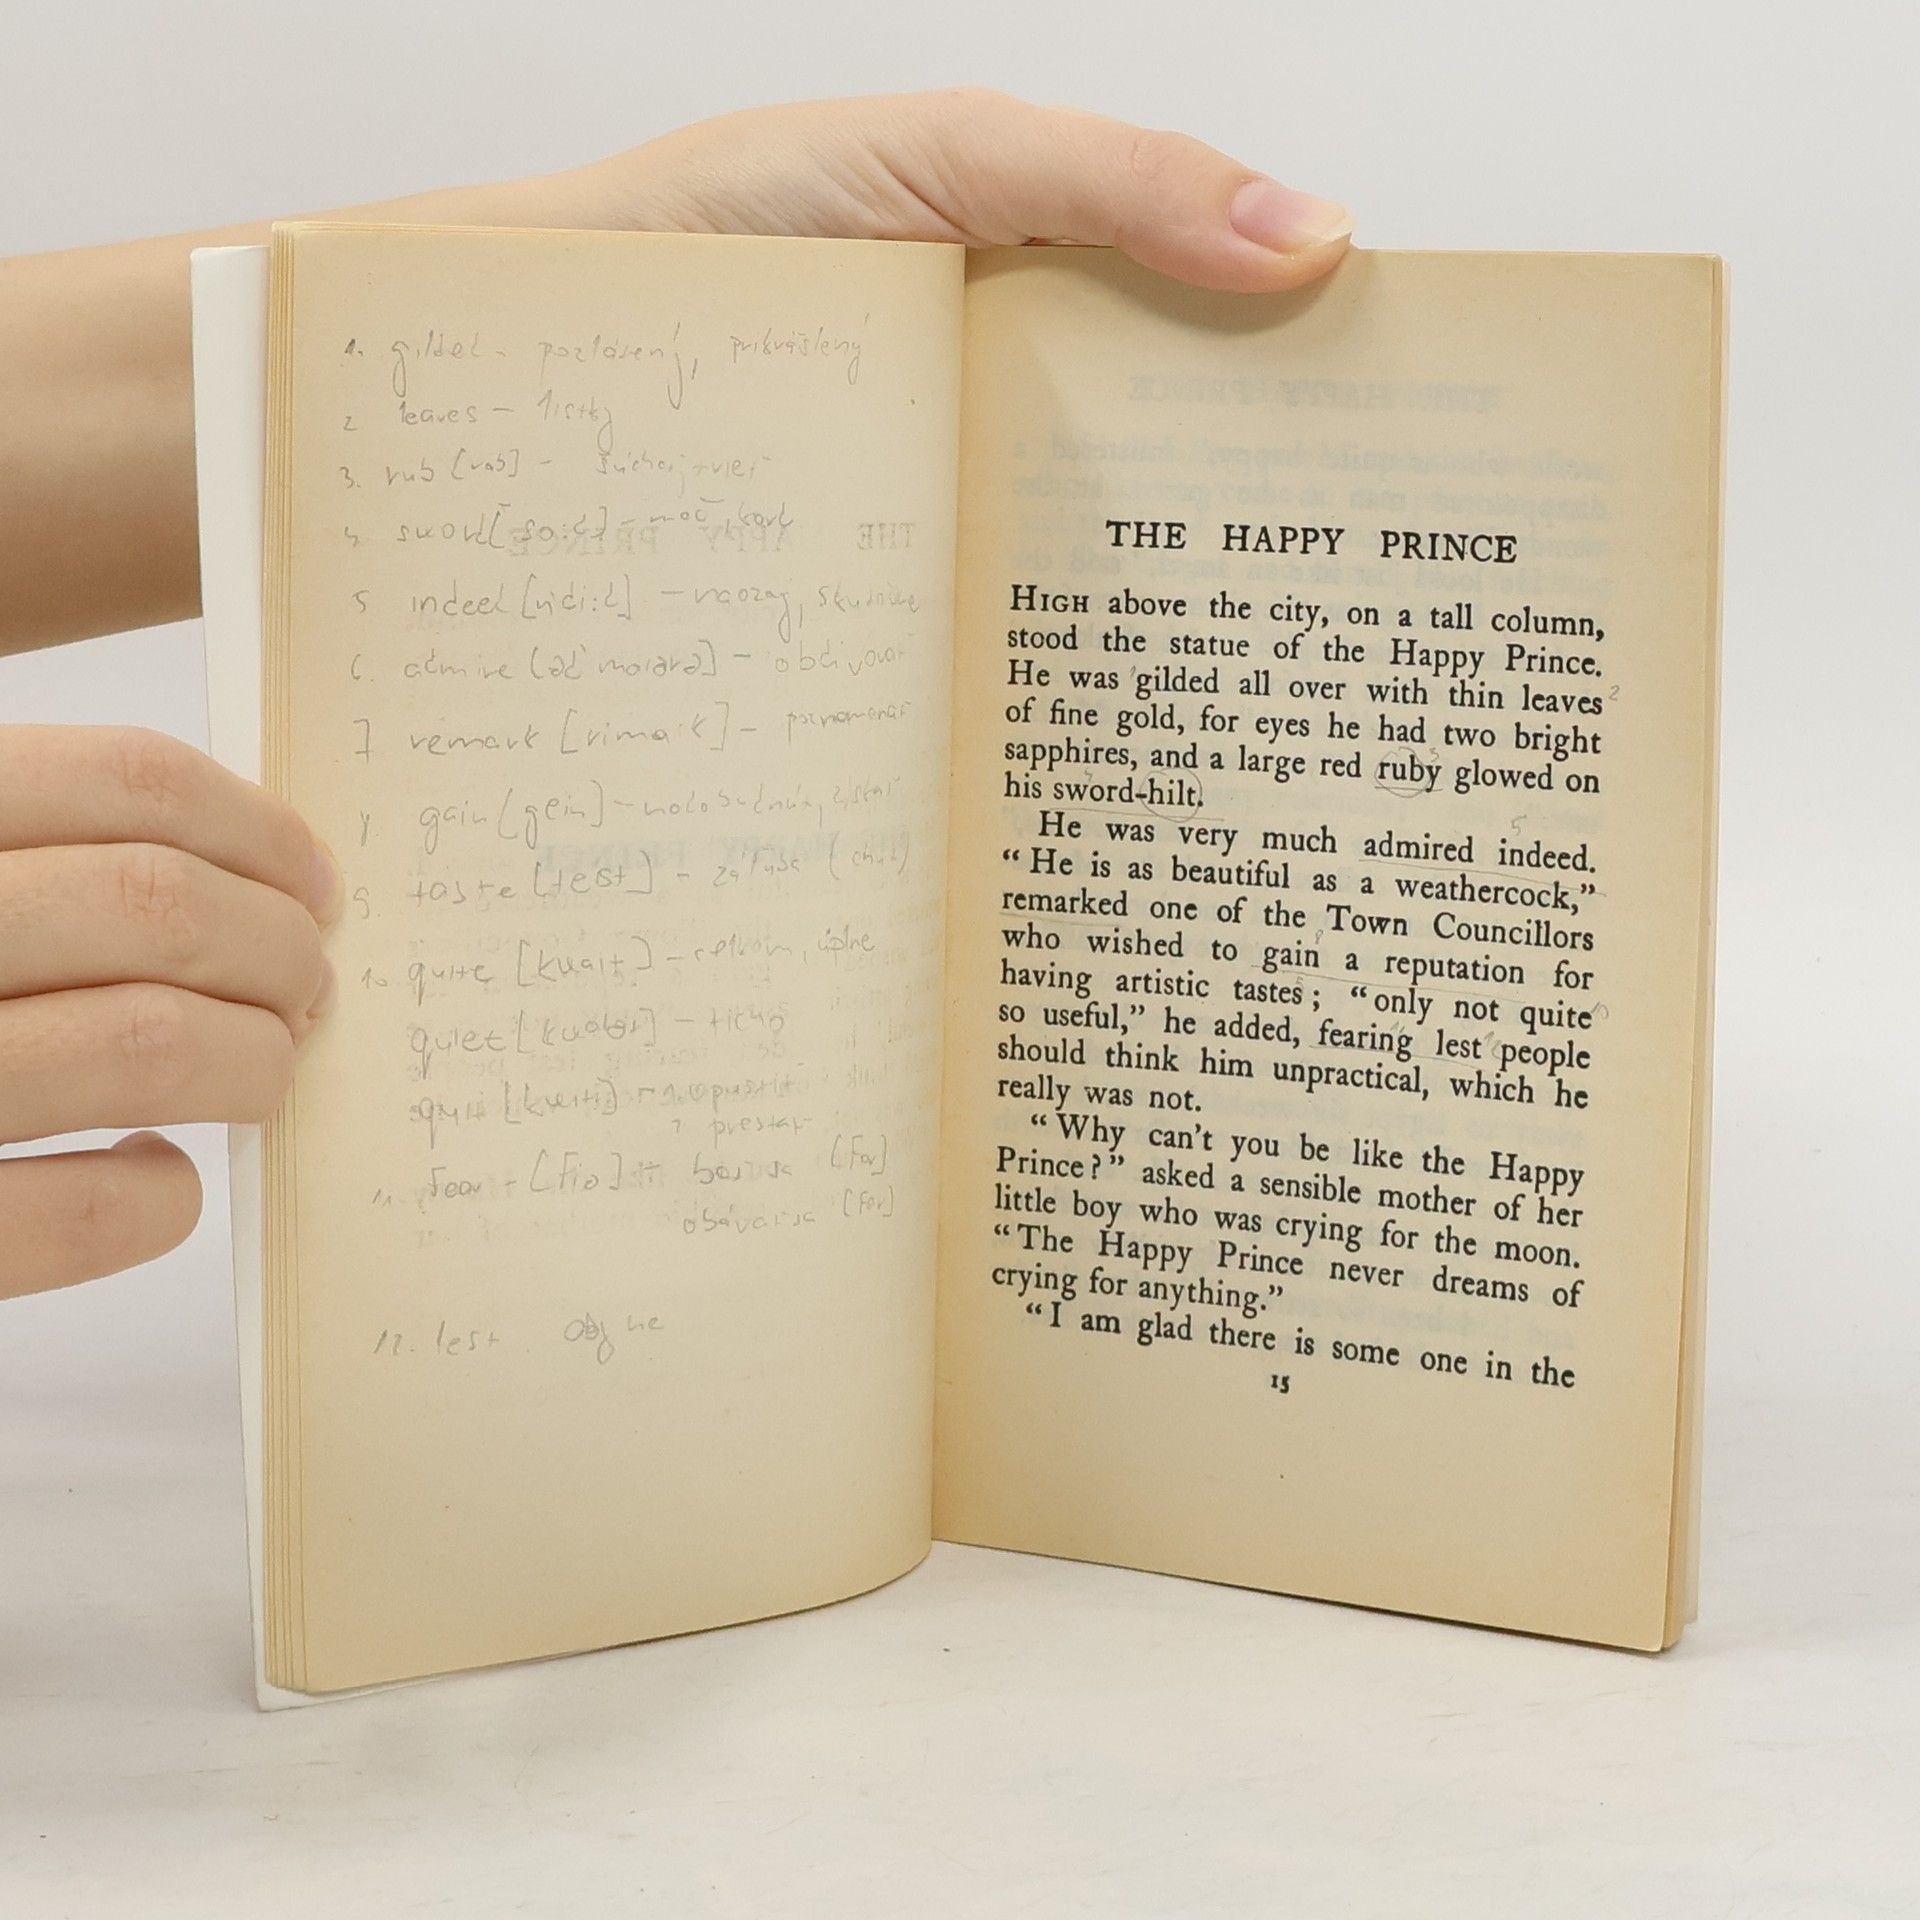 1. gilded - pozlátený, prikrášlený
2 leaves - lístky
3. rub
4 sword [so:d] -
5 indeed [indi:d] - naozaj, skutočne
6. admire - obdivovať
7 remark [rima:k] - poznamenať
gain [gein] -
9. taste [teist] - záľuba (chuť)
10 quite [kwait] - celkom, úplne
quiet - ticho
quit - 1. opustiť
2 prestať
11. fear - [fiə] - báť sa
obávať sa
12. lest aby ne
THE HAPPY PRINCE
HIGH above the city, on a tall column,
stood the statue of the Happy Prince.
He was 1 gilded all over with thin leaves 2
of fine gold, for eyes he had two bright
sapphires, and a large red ruby 3 glowed on
his sword-hilt.
He was very much admired indeed. 5
“ He is as beautiful as a weathercock,”
remarked one of the Town Councillors
who wished to gain 8 a reputation for
having artistic tastes ; “only not quite 10
so useful,” he added, fearing 11 lest 12 people
should think him unpractical, which he
really was not.
“ Why can't you be like the Happy
Prince ? ” asked a sensible mother of her
little boy who was crying for the moon.
“ The Happy Prince never dreams of
crying for anything.”
“ I am glad there is some one in the
15